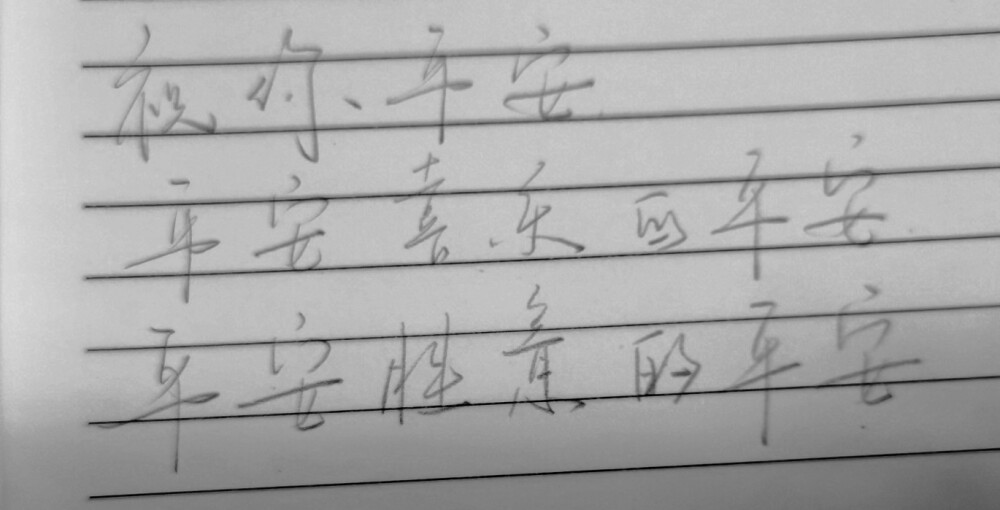 祝你、平安
平安喜乐的平安
平安胜意的平安